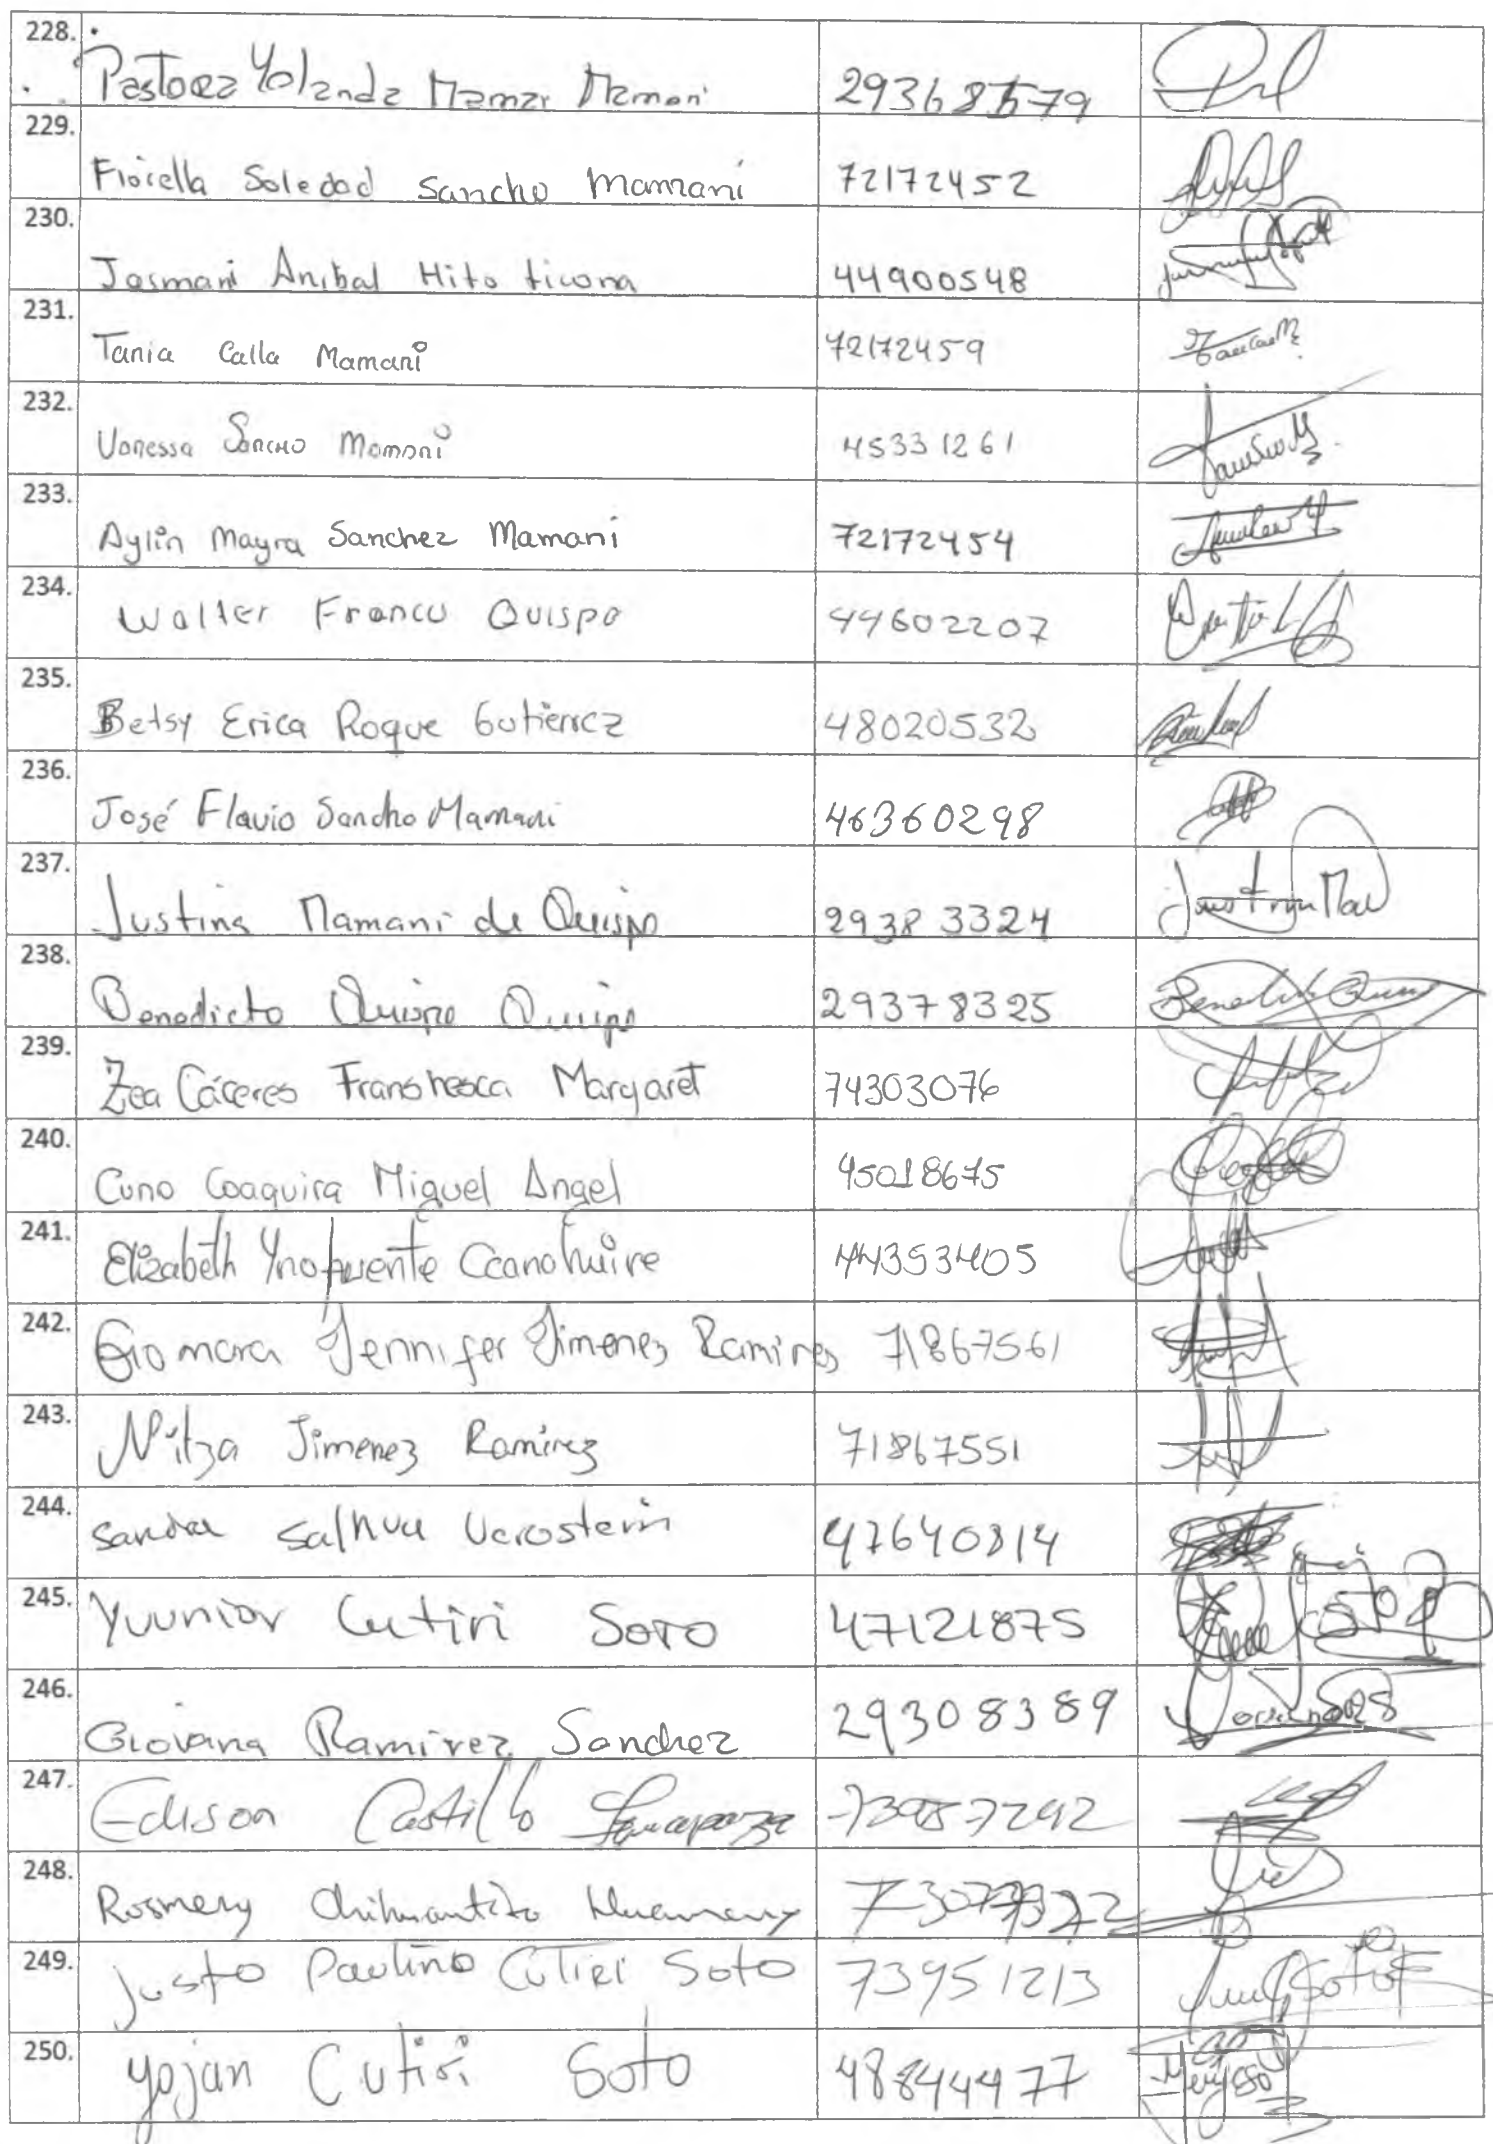 228. Pastora Yolanda Mamani Mamani
229. Fiorella Soledad Sancho Mamani 72172452
230. Josmani Anibal Hito ticona 44900548
231. Tania Calla Mamani 72172459
232. Vanessa Sancho Mamani 45331261
233. Aylin Mayra Sanchez Mamani 72172454
234. Walter Franco Quispe 44602207
235. Betsy Erica Roque Gutierrez 48020532
236. José Flavio Sancho Mamani 46360298
237. Justina Mamani de Quispe 29383324
238. Benedicto Quispe Quispe 29378325
239. Zea Cáceres Franshesca Margaret 74303076
240. Cuno Coaquira Miguel Angel 45018675
241. Elizabeth Ynofuente Ccanahuire 44353405
242. Giomara Jennifer Jimenez Ramirez 71867561
243. Nitza Jimenez Ramirez 71867551
244. Sandra Salhua 47640814
245. Yuunior Cutiri Soto 47121875
246. Giovana Ramirez Sanchez 29308389
247. Edison Castillo
248. Rosmery Chihuantito
249. Justo Paulino Cutiri Soto 73951213
250. Yojan Cutiri Soto 48844477